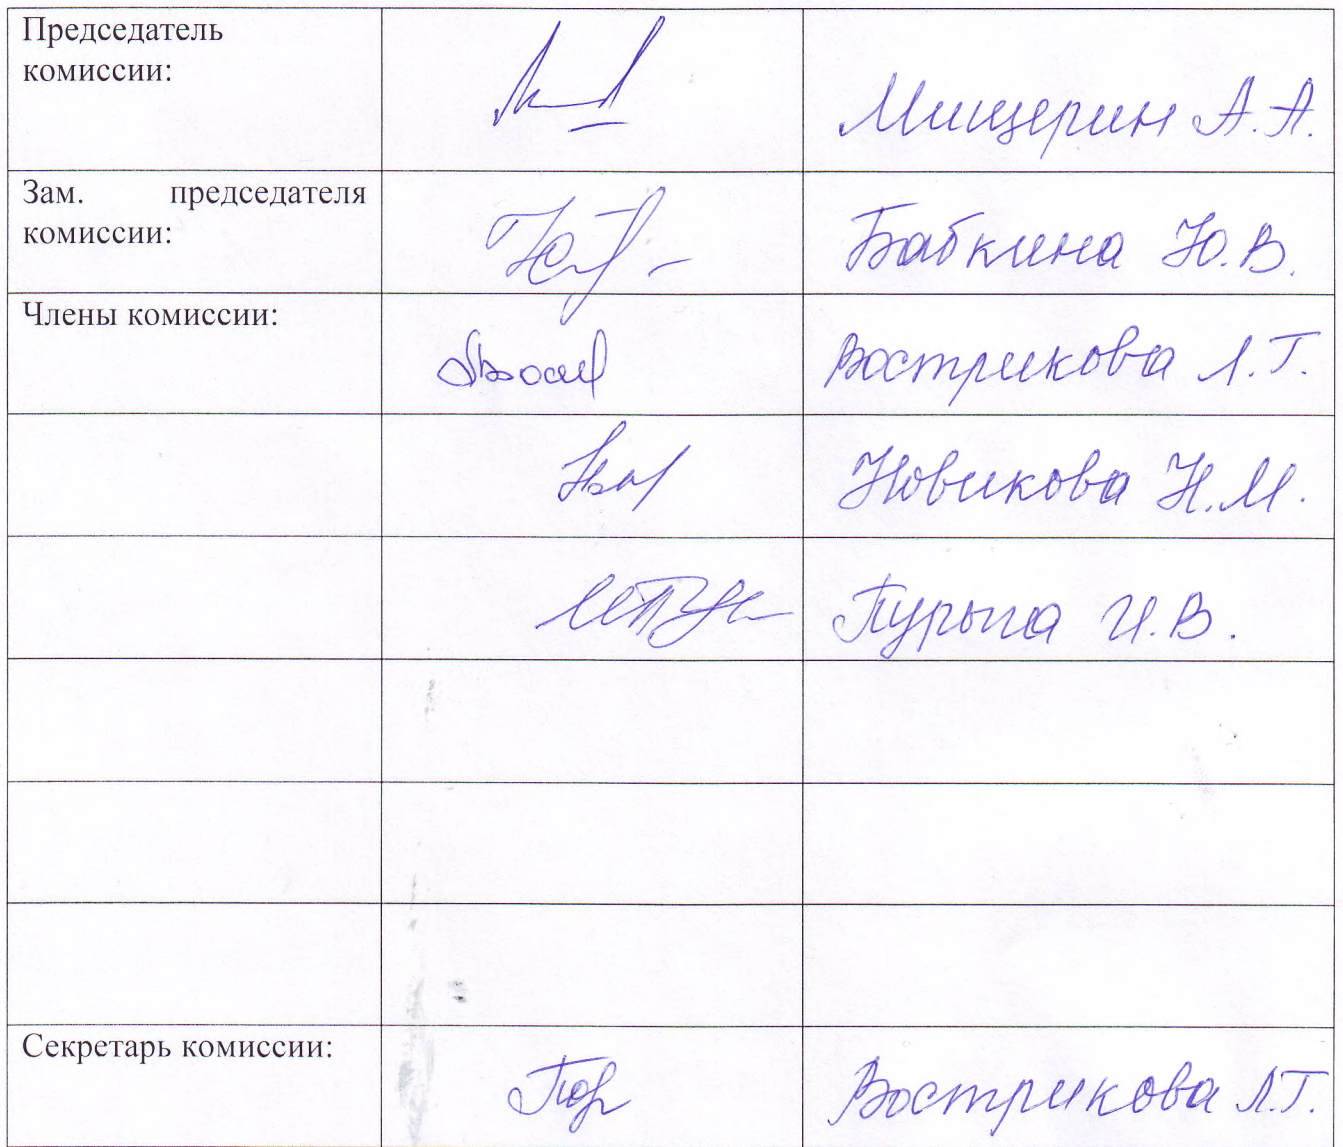 Председатель
комиссии:
Мищерин А.А.
Зам. председателя
комиссии:
Бабкина Ю.В.
Члены комиссии:
Вострикова Л.Г.
Новикова Н.М.
И.В.
Секретарь комиссии:
Вострикова Л.Г.